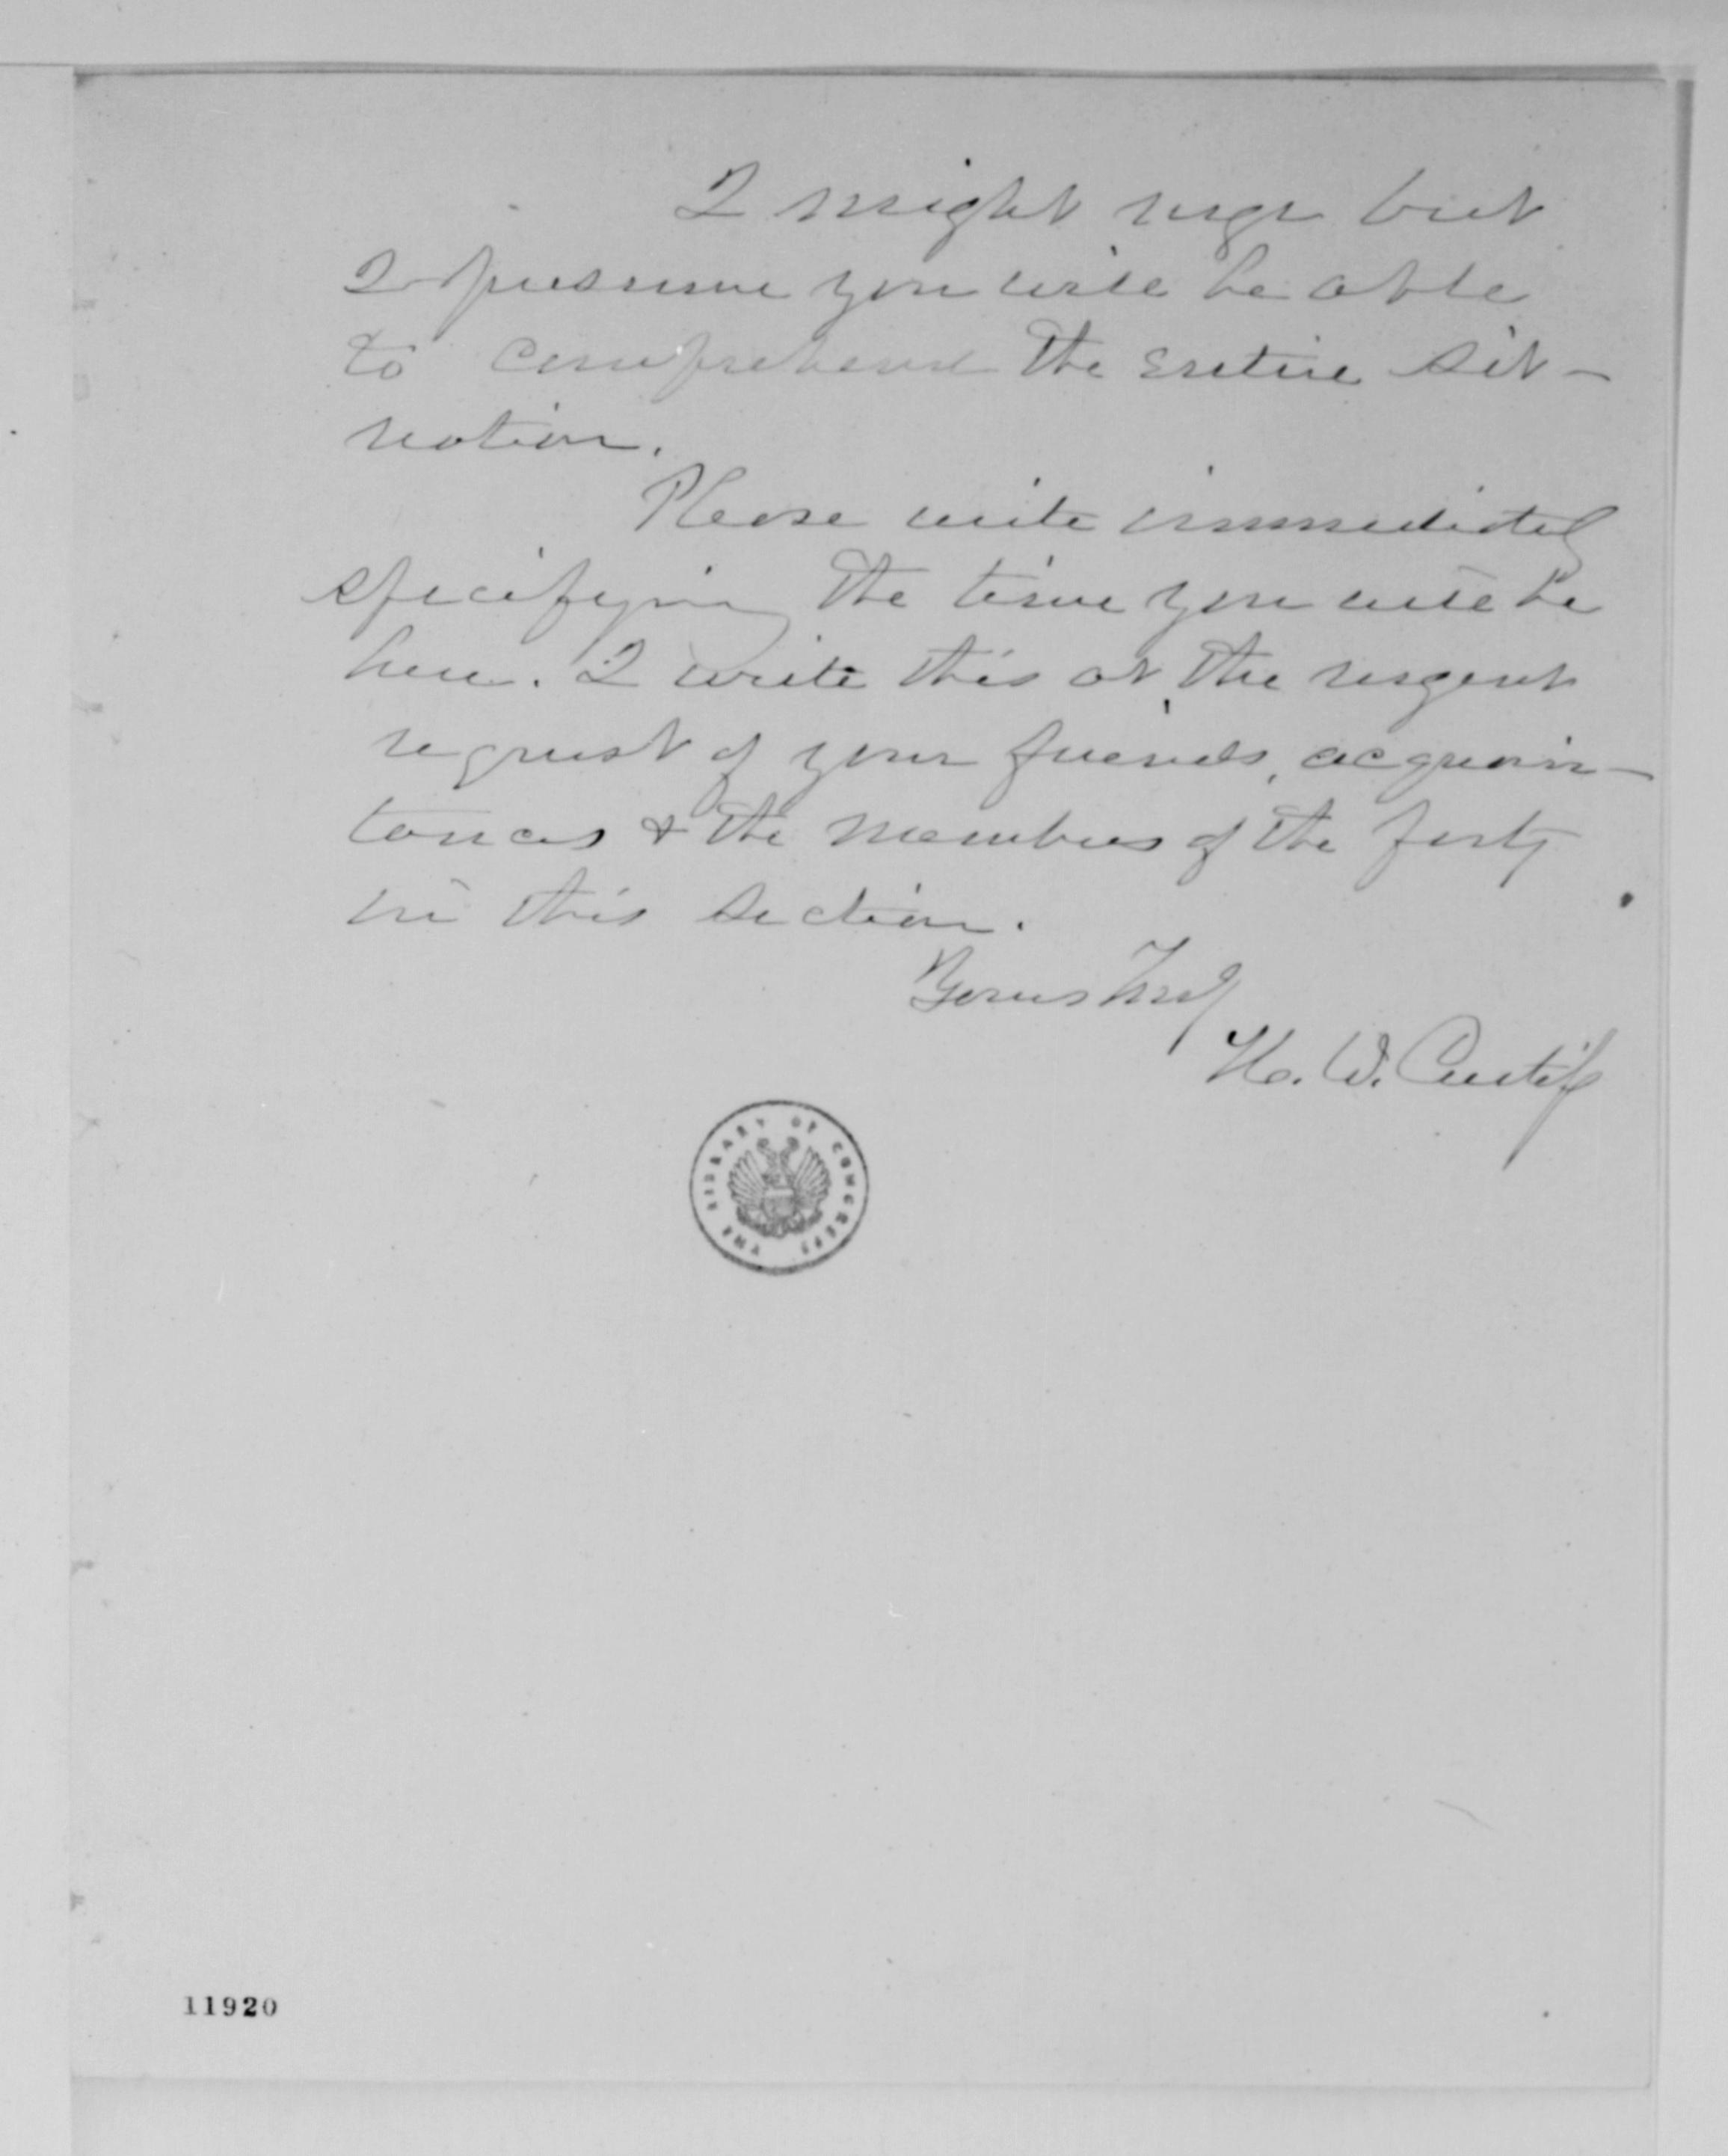 I might urge but
I presume you will be able
to comprehend the entire sit-
uation.
Please write immediately
specifying the time you will be
here. I write this at the urgent
request of your friends, acquain-
tances & the members of the party
in this section.
Yours Truly
H. W. Curtis
THE LIBRARY OF CONGRESS
11920